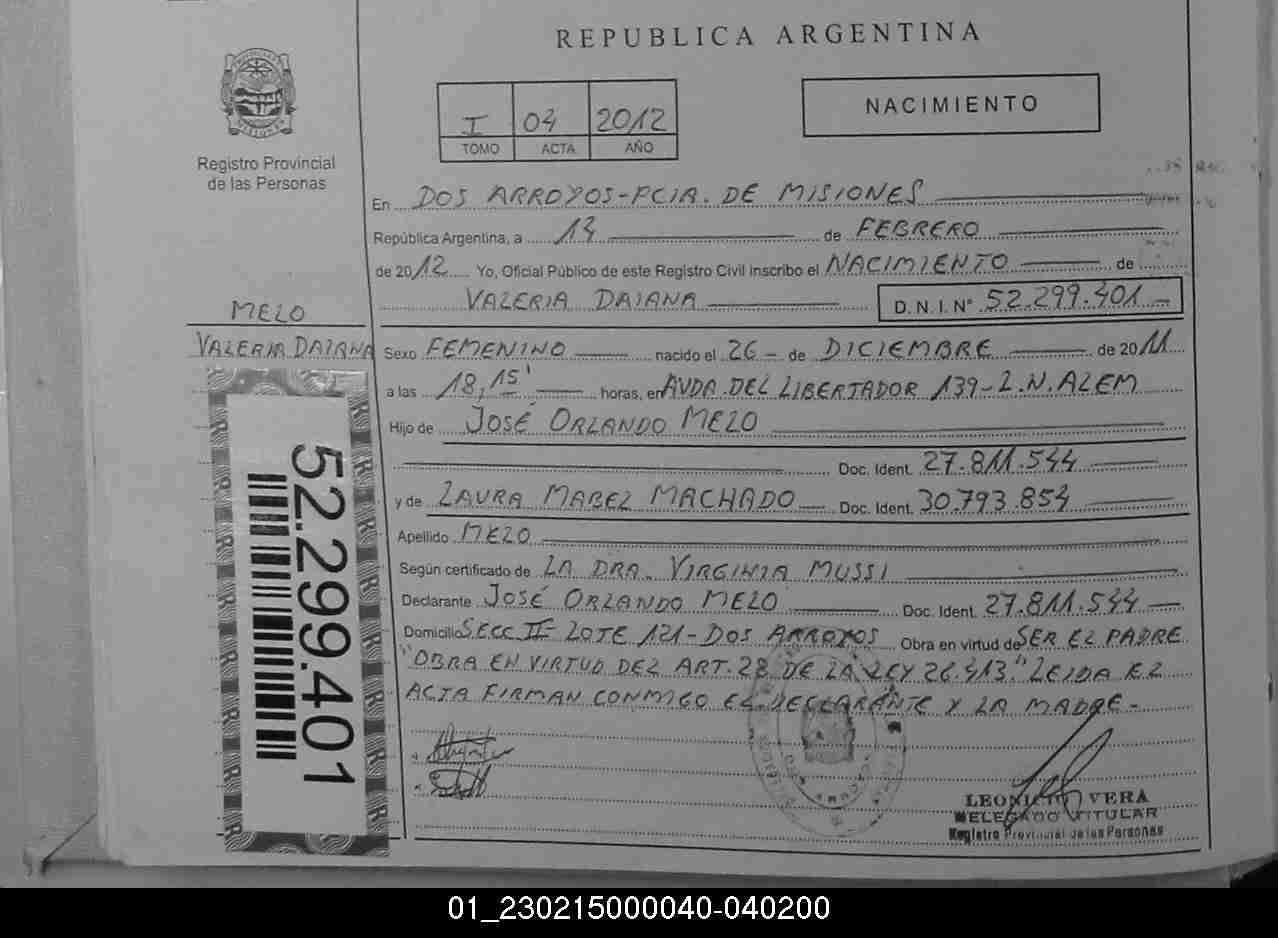 REPUBLICA ARGENTINA
Registro Provincial
de las Personas
I 04 2012
TOMO ACTA AÑO
NACIMIENTO
En DOS ARROYOS-PCIA. DE MISIONES
República Argentina, a 14 de FEBRERO
de 2012 Yo, Oficial Público de este Registro Civil inscribo el NACIMIENTO de
VALERIA DAIANA D.N.I. N° 52.299.401
MELO
VALERIA DAIANA
Sexo FEMENINO nacido el 26 - de DICIEMBRE de 2011
a las 18,15' horas, en AVDA. DEL LIBERTADOR 139-L.N. ALEM
Hijo de JOSÉ ORLANDO MELO
Doc. Ident. 27.811.544
y de LAURA MABEL MACHADO Doc. Ident. 30.793.854
Apellido MELO
Según certificado de LA DRA. VIRGINIA MUSSI
Declarante JOSÉ ORLANDO MELO Doc. Ident. 27.811.544
Domicilio SECC II - LOTE 121 - DOS ARROYOS Obra en virtud de SER EL PADRE
"OBRA EN VIRTUD DEL ART. 28 DE LA LEY 26.413." LEIDA EL
ACTA FIRMAN CONMIGO EL DECLARANTE Y LA MADRE-
52.299.401
LEONICIO VERA
DELEGADO TITULAR
Registro Provincial de las Personas
01_230215000040-040200